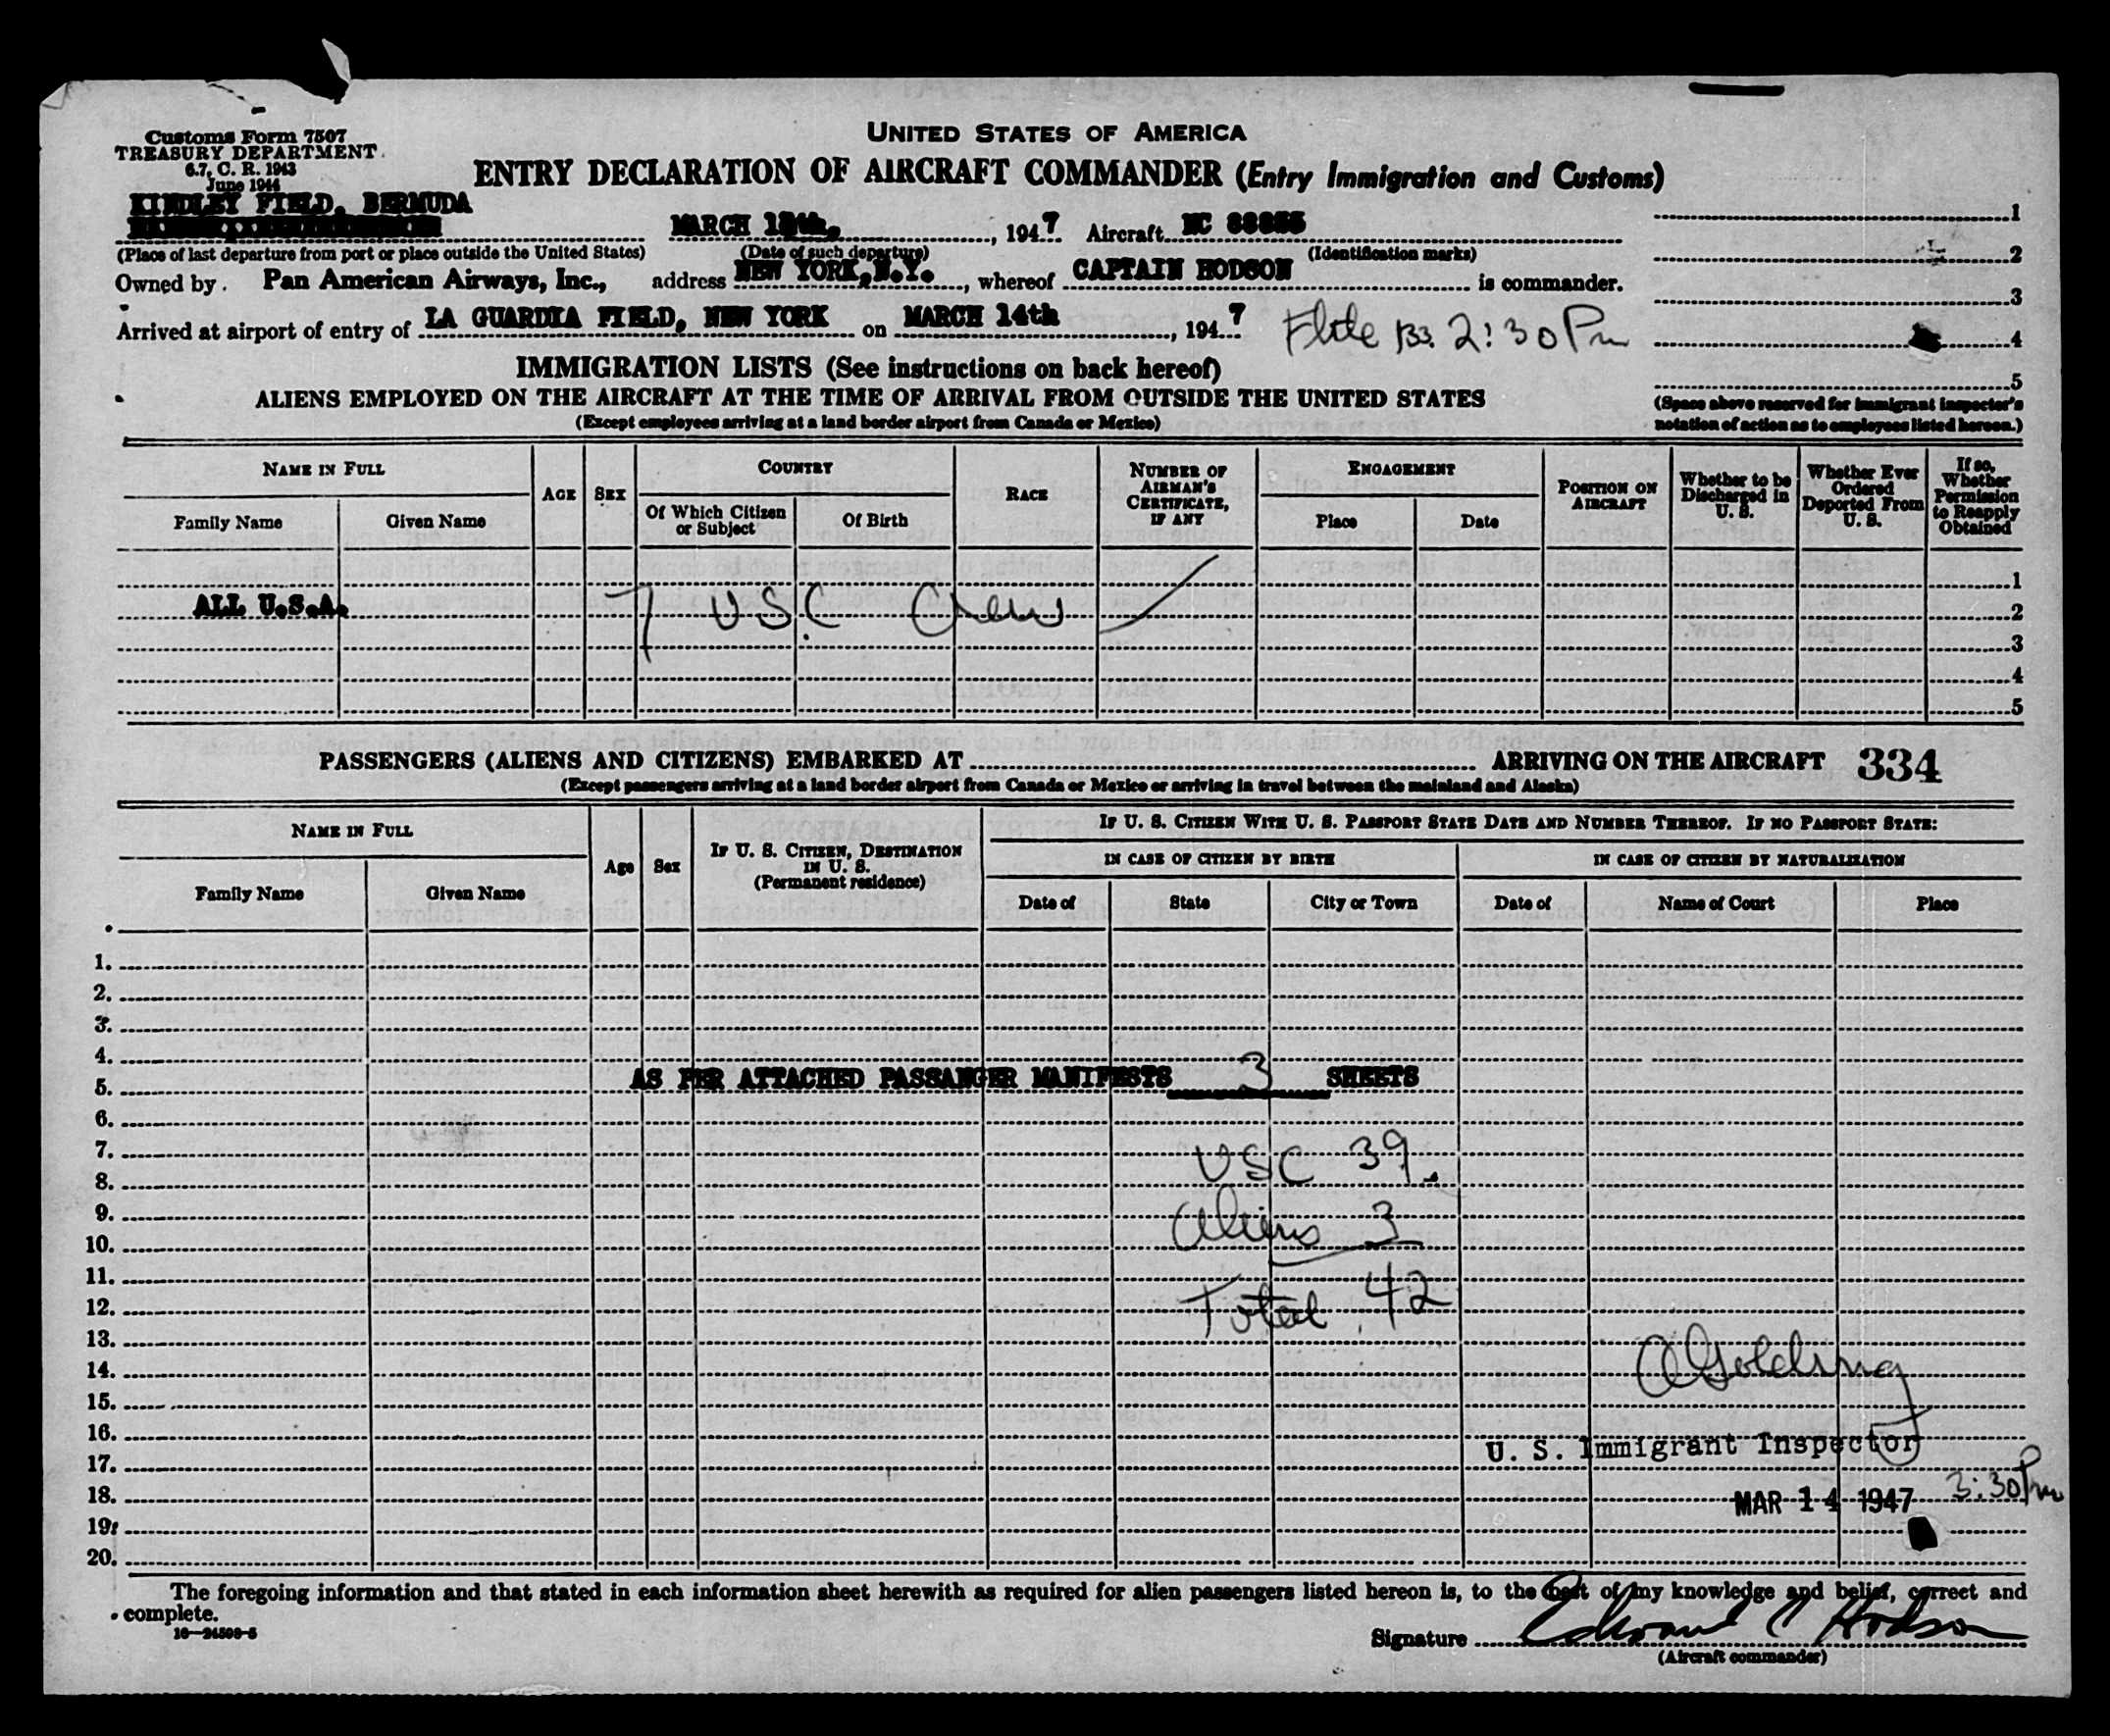 Customs Form 7507
TREASURY DEPARTMENT
6.7, C. R. 1943
June 1944
UNITED STATES OF AMERICA
ENTRY DECLARATION OF AIRCRAFT COMMANDER (Entry Immigration and Customs)
KINDLEY FIELD, BERMUDA
MARCH , 1947 Aircraft NC
(Place of last departure from port or place outside the United States) (Date of such departure) (Identification marks)
Owned by Pan American Airways, Inc., address NEW YORK, N.Y., whereof CAPTAIN HODSON is commander.
Arrived at airport of entry of LA GUARDIA FIELD, NEW YORK on MARCH 14th, 1947 2:30 Pm
1
2
3
4
5
(Space above reserved for immigrant inspector's
notation of action as to employees listed hereon.)
IMMIGRATION LISTS (See instructions on back hereof)
ALIENS EMPLOYED ON THE AIRCRAFT AT THE TIME OF ARRIVAL FROM OUTSIDE THE UNITED STATES
(Except employees arriving at a land border airport from Canada or Mexico)
NAME IN FULL
Family Name Given Name
AGE
SEX
COUNTRY
Of Which Citizen or Subject
Of Birth
RACE
NUMBER OF AIRMAN'S CERTIFICATE, IF ANY
ENGAGEMENT
Place Date
POSITION ON AIRCRAFT
Whether to be Discharged in U. S.
Whether Ever Ordered Deported From U. S.
If so, Whether Permission to Reapply Obtained
1
ALL U.S.A. 7 USC Crew 2
3
4
5
PASSENGERS (ALIENS AND CITIZENS) EMBARKED AT ARRIVING ON THE AIRCRAFT 334
(Except passengers arriving at a land border airport from Canada or Mexico or arriving in travel between the mainland and Alaska)
NAME IN FULL
Family Name Given Name
Age
Sex
IF U. S. CITIZEN, DESTINATION IN U. S.
(Permanent residence)
IF U. S. CITIZEN WITH U. S. PASSPORT STATE DATE AND NUMBER THEREOF. IF NO PASSPORT STATE:
IN CASE OF CITIZEN BY BIRTH
Date of State City or Town
IN CASE OF CITIZEN BY NATURALIZATION
Date of Name of Court Place
1.
2.
3.
4.
5. AS PER ATTACHED PASSANGER MANIFESTS 3 SHEETS
6.
7.
8. USC 39
9.
10. Aliens 3
11.
12. Total 42
13.
14. A Golding
15.
16.
U. S. Immigrant Inspector
17.
18. MAR 14 1947 3:30 Pm
19.
20.
The foregoing information and that stated in each information sheet herewith as required for alien passengers listed hereon is, to the best of my knowledge and belief, correct and
complete.
16—24598-5
Signature Edward C Hodson
(Aircraft commander)